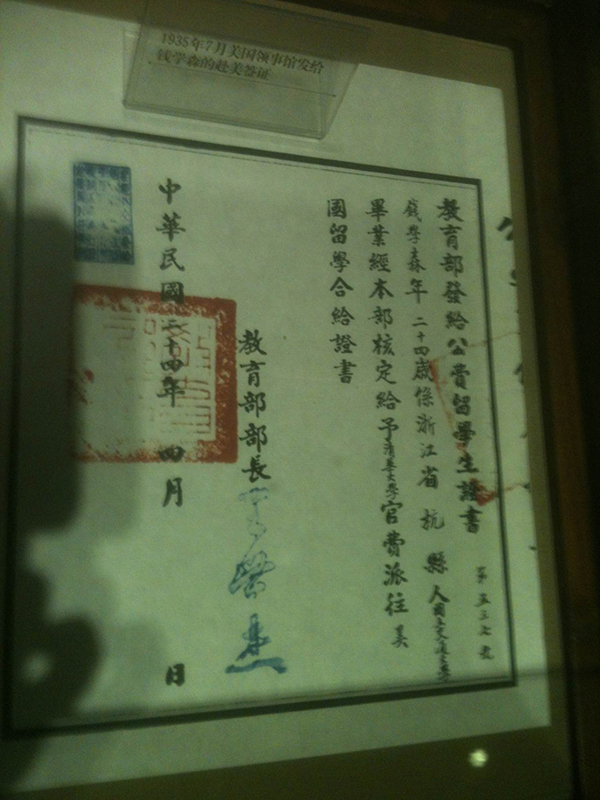 1935年7月美国领事馆发给
钱学森的赴美签证
教育部發給公費留學生證書
第五三七號
錢學森年二十四歲係浙江省杭縣人國立交通大學
畢業經本部核定給予清華大學官費派往美
國留學合給證書
教育部部長
中華民國二十四年四月 日